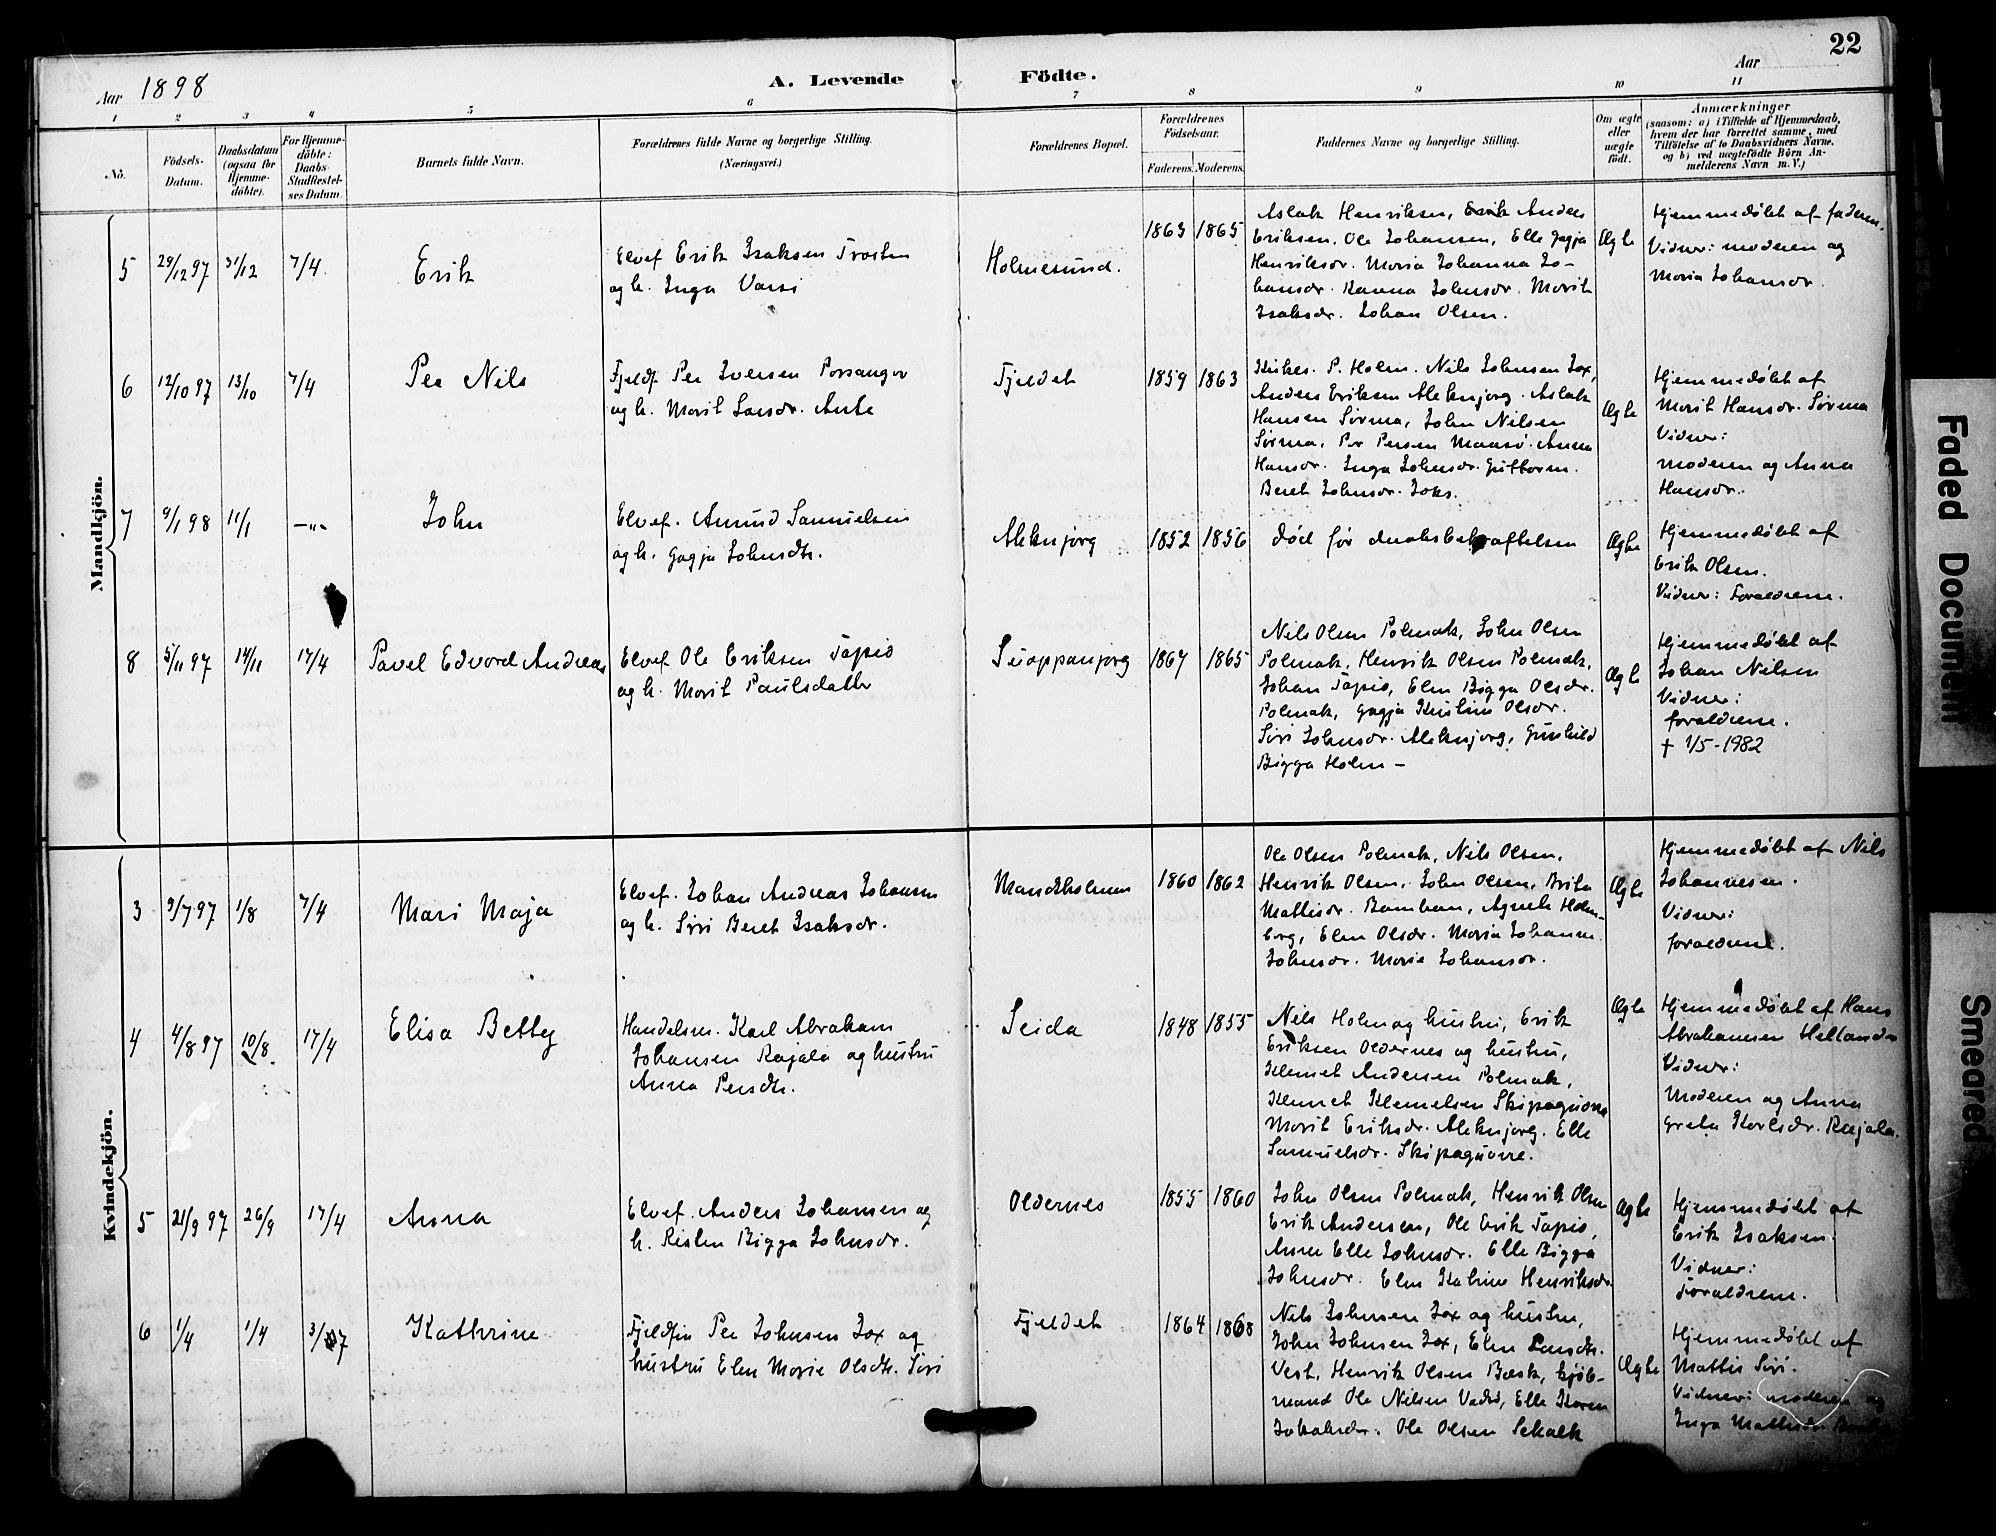 22
Aar 1898
A. Levende Födte.
Aar
1 2 3 4 5 6 7 8 9 10 11
No.
Födsels-Datum.
Daabsdatum (ogsaa for Hjemme-döbte).
For Hjemme-döbte: Daabs-Stadfæstel-ses Datum.
Barnets fulde Navn.
Forældrenes fulde Navne og borgerlige Stilling.
(Næringsvei.)
Forældrenes Bopæl.
Forældrenes Födselsaar.
Faderens. Moderens.
Faddernes Navne og borgerlige Stilling.
Om ægte eller uægte födt.
Anmærkninger
(saasom: a) i Tilfælde af Hjemmedaab,
hvem der har forrettet samme, med
Tilföielse af to Daabsvidners Navne.
og b) ved uægtefödte Börn An-
melderens Navn m. V.)
Mandkjön.
5 29/12 97 31/12 7/4 Erik
Elvef Erik Isaksen Trosten
og h. Inga Varsi
Holmesund.
1863 1865
Aslak Henriksen, Anders
Eriksen, Ole Johansen, Elle Gagja
Henriksdr. Maria Johanna Jo-
hansdr. Hanna Johnsdr. Marit
Isaksdr. Johan Olsen.
Ægte
Hjemmedøbt af faderen.
Vidner: moderen og
Maria Johansdr.
6 12/10 97 13/10 7/4 Per Nils
Fjeldf. Per Iversen Porsanger
og h. Marit Larsdr. Ante
Fjeldet
1859 1863
Kirkes. P. Holm. Nils Johnsen Jox,
Anders Eriksen Aleknjarg. Aslak
Hansen Sirma, John Nilsen
Sirma, Per Persen Maasø. Anna
Hansdr. Inga Johnsdr. Guttorm.
Beret Johnsdr. Joks.
Ægte
Hjemmedøbt af
Marit Hansdr. Sirma
Vidner:
moderen og Anna
Hansdr.
7 9/1 98 11/1 —"— John
Elvef. Amund Samuelsen
og h. Gagja Johnsdtr.
Aleknjarg
1852 1856
død før daabsbekræftelsen
Ægte
Hjemmedøbt af
Erik Olsen.
Vidner: Forældrene.
8 5/11 97 14/11 17/4 Pavel Edvard Andreas
Elvef Ole Eriksen Tapio
og h. Marit Paulsdatter
Suoppanjarg
1867 1865
Nils Olsen Polmak, John Olsen
Polmak, Henrik Olsen Polmak,
Johan Tapio, Elen Bigga Olsdr.
Polmak, Gagja Kristine Olsdr.
Siri Johnsdr. Aleknjarg, Gunhild
Bigga Holm —
Ægte
Hjemmedøbt af
Johan Nilsen
Vidner:
forældrene.
† 1/5-1982
Kvindekjön.
3 9/7 97 1/8 7/4 Mari Maja
Elvef. Johan Andreas Johansen
og h. Siri Beret Isaksdr.
Mandsholmen
1860 1862
Ole Olsen Polmak, Nils Olsen,
Henrik Olsen, John Olsen, Brita
Mattisdr. Banhan, Agnete Holm-
borg, Elen Olsdr. Maria Johanne
Johnsdr. Marie Johansdr.
Ægte
Hjemmedøbt af Nils
Johannesen.
Vidner:
forældrene.
4 4/8 97 10/8 17/4 Elisa Betty
Handelsm. Karl Abraham
Johansen Rajala og hustru
Anna Persdtr.
Seida
1848 1855
Nils Holm og hustru, Erik
Eriksen Oldernes og hustru,
Klemet Andersen Polmak,
Klemet Klemetsen Skipaguovra
Marit Eriksdr. Aleknjarg. Elle
Samuelsdr. Skipaguovre.
Ægte
Hjemmedøbt af Hans
Abrahamsen Hellander
Vidner:
Moderen og Anna
Greta Karlsdr. Rajala.
5 21/9 97 26/9 17/4 Anna
Elvef. Anders Johansen og
h. Risten Bigga Johnsdr.
Oldernes
1855 1860
John Olsen Polmak, Henrik Olsen
Erik Andersen, Ole Erik Tapio,
Anne Elle Johnsdr. Elle Bigga
Johnsdr. Elen Katrine Henriksdr.
Ægte
Hjemmedøbt af
Erik Isaksen.
Vidner:
Forældrene.
6 1/4 1/4 Kathrine
Fjeldfin Per Johnsen Jox og
hustru Elen Marie Olsdtr. Siri
Fjeldet
1864 1868
Nils Johnsen Jox og hustru,
John Johnsen Jox, Elen Larsdtr.
Vest, Henrik Olsen Bæsk, kjøb-
mand Ole Nilsen Vadsø, Elle Karen
Ole Olsen Schalk
Ægte
Hjemmedøbt af
Mattis Siri.
Vidner: moderen og
Inga Mathisdr.
Faded Document
Smeared